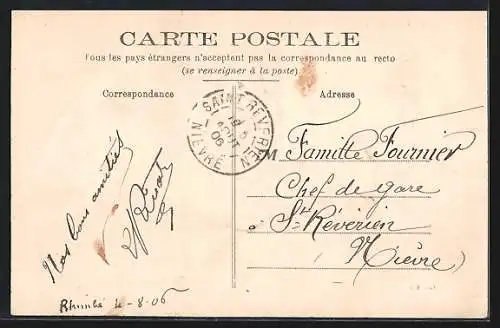 CARTE POSTALE
Tous les pays étrangers n'acceptent pas la correspondance au recto
(se renseigner à la poste)
Correspondance
Adresse
SAINT-RÉVÉRIEN
AOUT
06
NIÈVRE
M
Famille Fournier
Chef de gare
à St Révérien
(Nièvre)
Nos bons amitiés
4-8-06